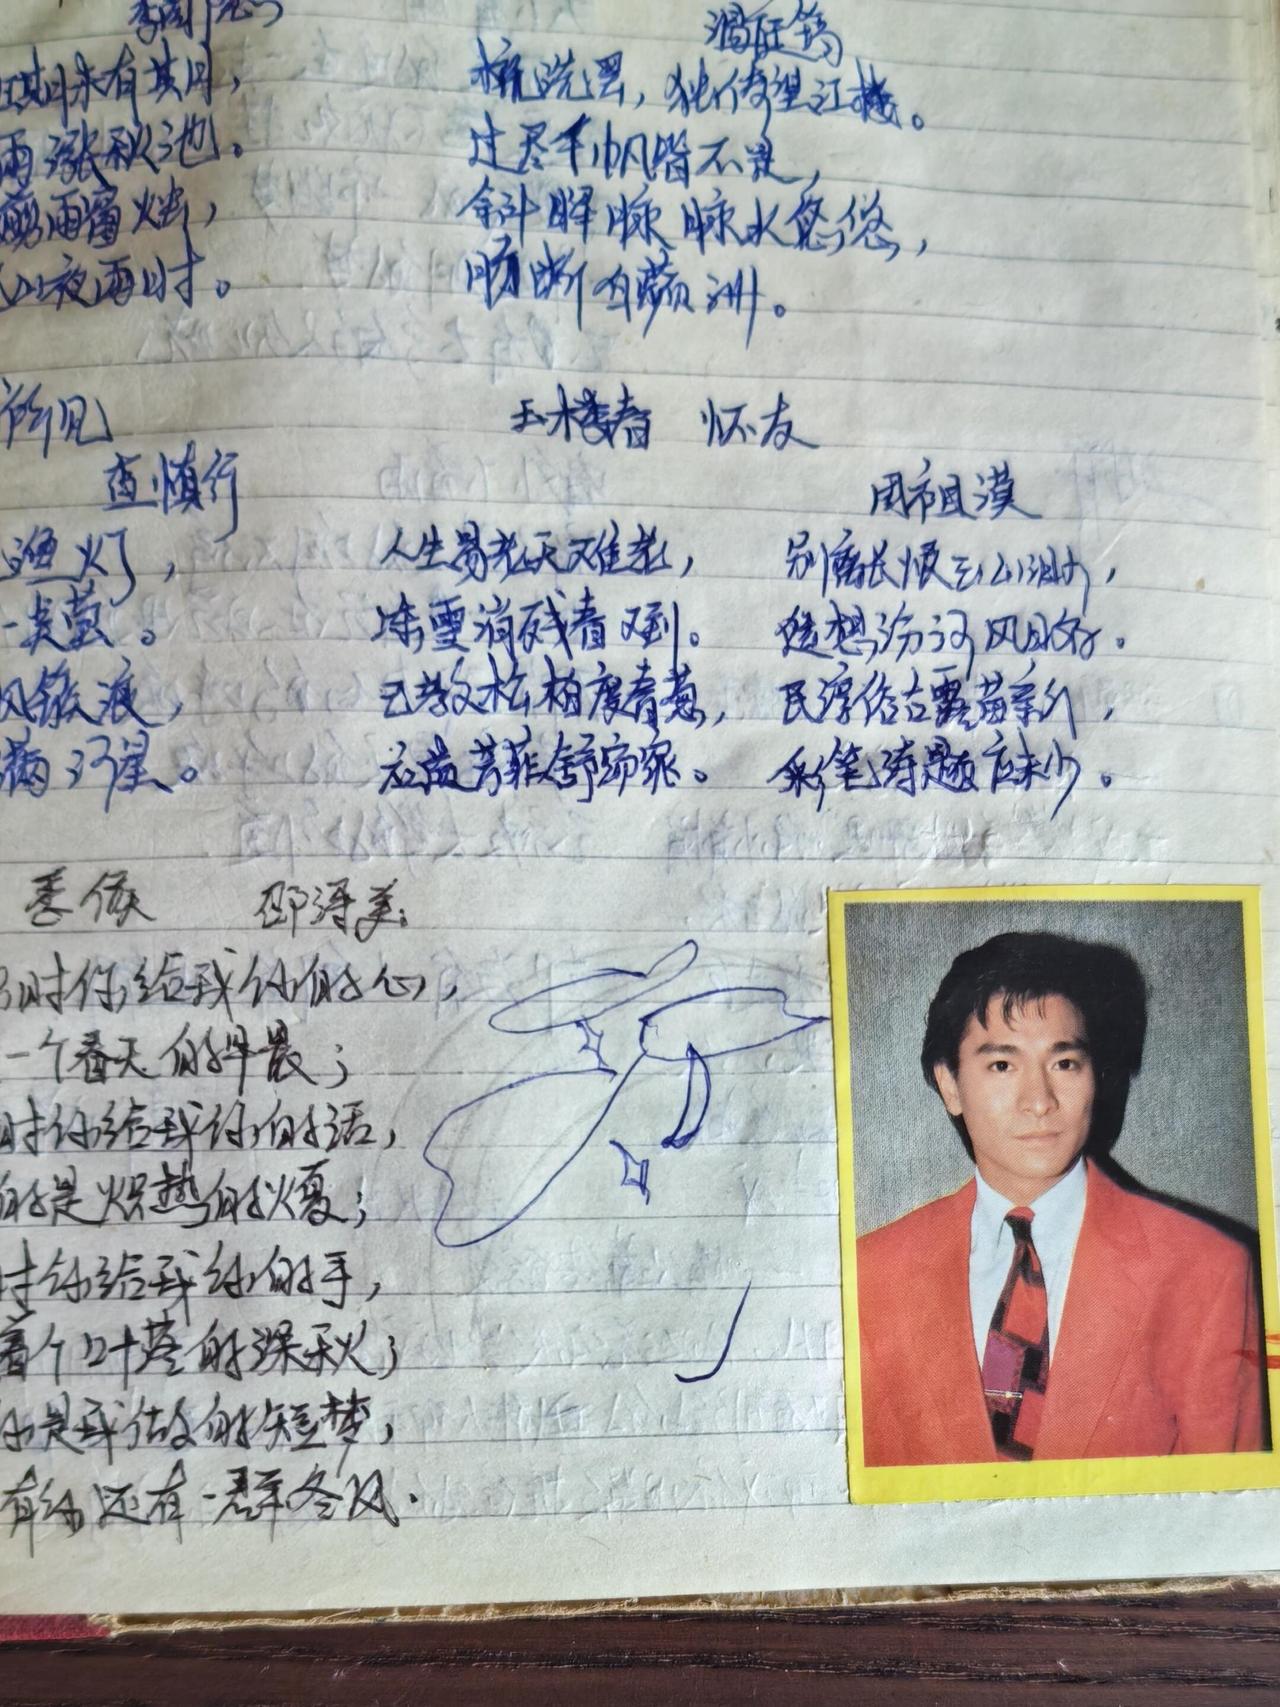 李商隐
未有其月，
雨涨秋池。
剪西窗烛，
山夜雨时。
温庭筠
梳洗罢，独倚望江楼。
过尽千帆皆不是，
余斜晖脉脉水悠悠，
肠断白蘋洲。
所见
查慎行
渔灯，
一点萤。
风簇浪，
满河星。
玉楼春 怀友
周祖谟
人生易老天难老，
冻雪消残春又到。
已教松柏度青葱，
应茂芳菲舒窈窕。
别离长恨云山渺，
遥想汾河风日好。
民淳俗古露苗新，
彩笔诗题应未少。
季候 邵洵美：
时你给我你的心，
一个春天的早晨；
时你给我你的话，
的是炽热的火夏；
时你给我你的手，
着个叶落的深秋；
你是我做的短梦，
有你还有一群冬风．